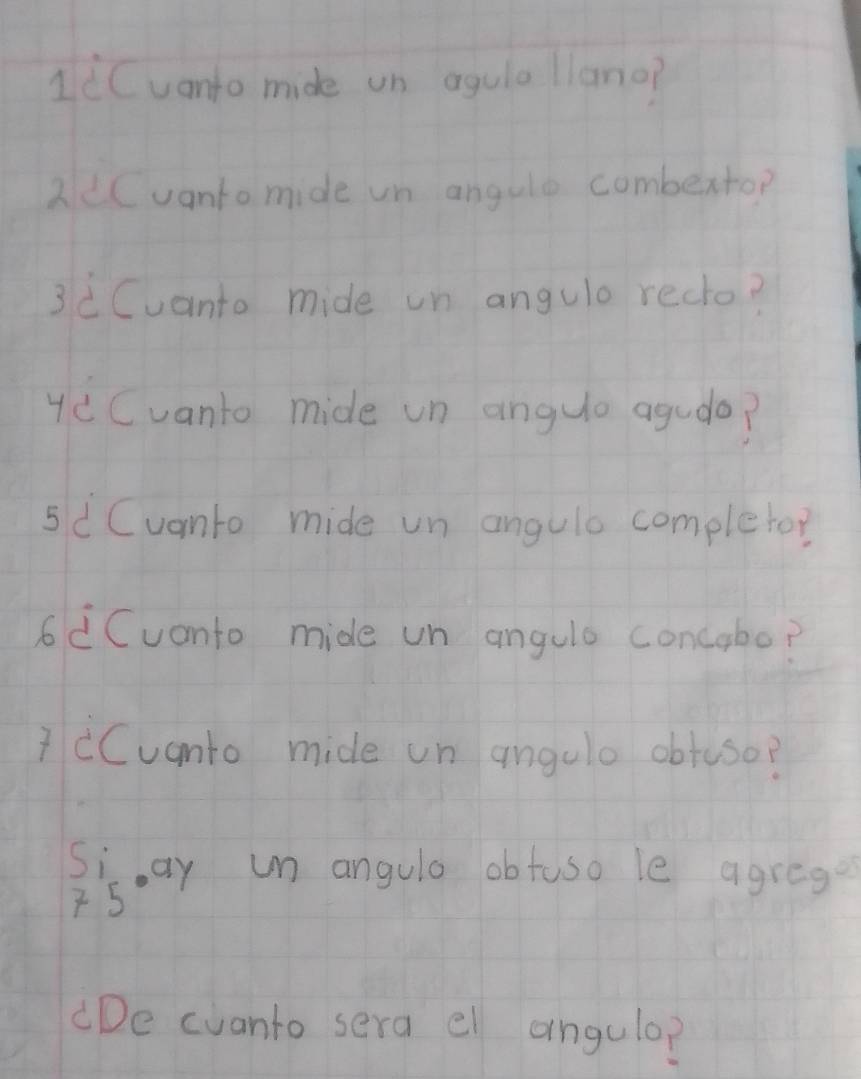 1¿Cuanto mide un agulo llano?
2¿Cuanto mide un angulo combexto?
3¿Cuanto mide un angulo recto?
4¿Cuanto mide un angulo agudo?
5¿Cuanto mide un angulo completo?
6¿Cuanto mide un angulo concabo?
7¿Cuanto mide un angulo obtuso?
Si.ay un angulo obtuso le agrego
75
¿De cuanto sera el angulo?